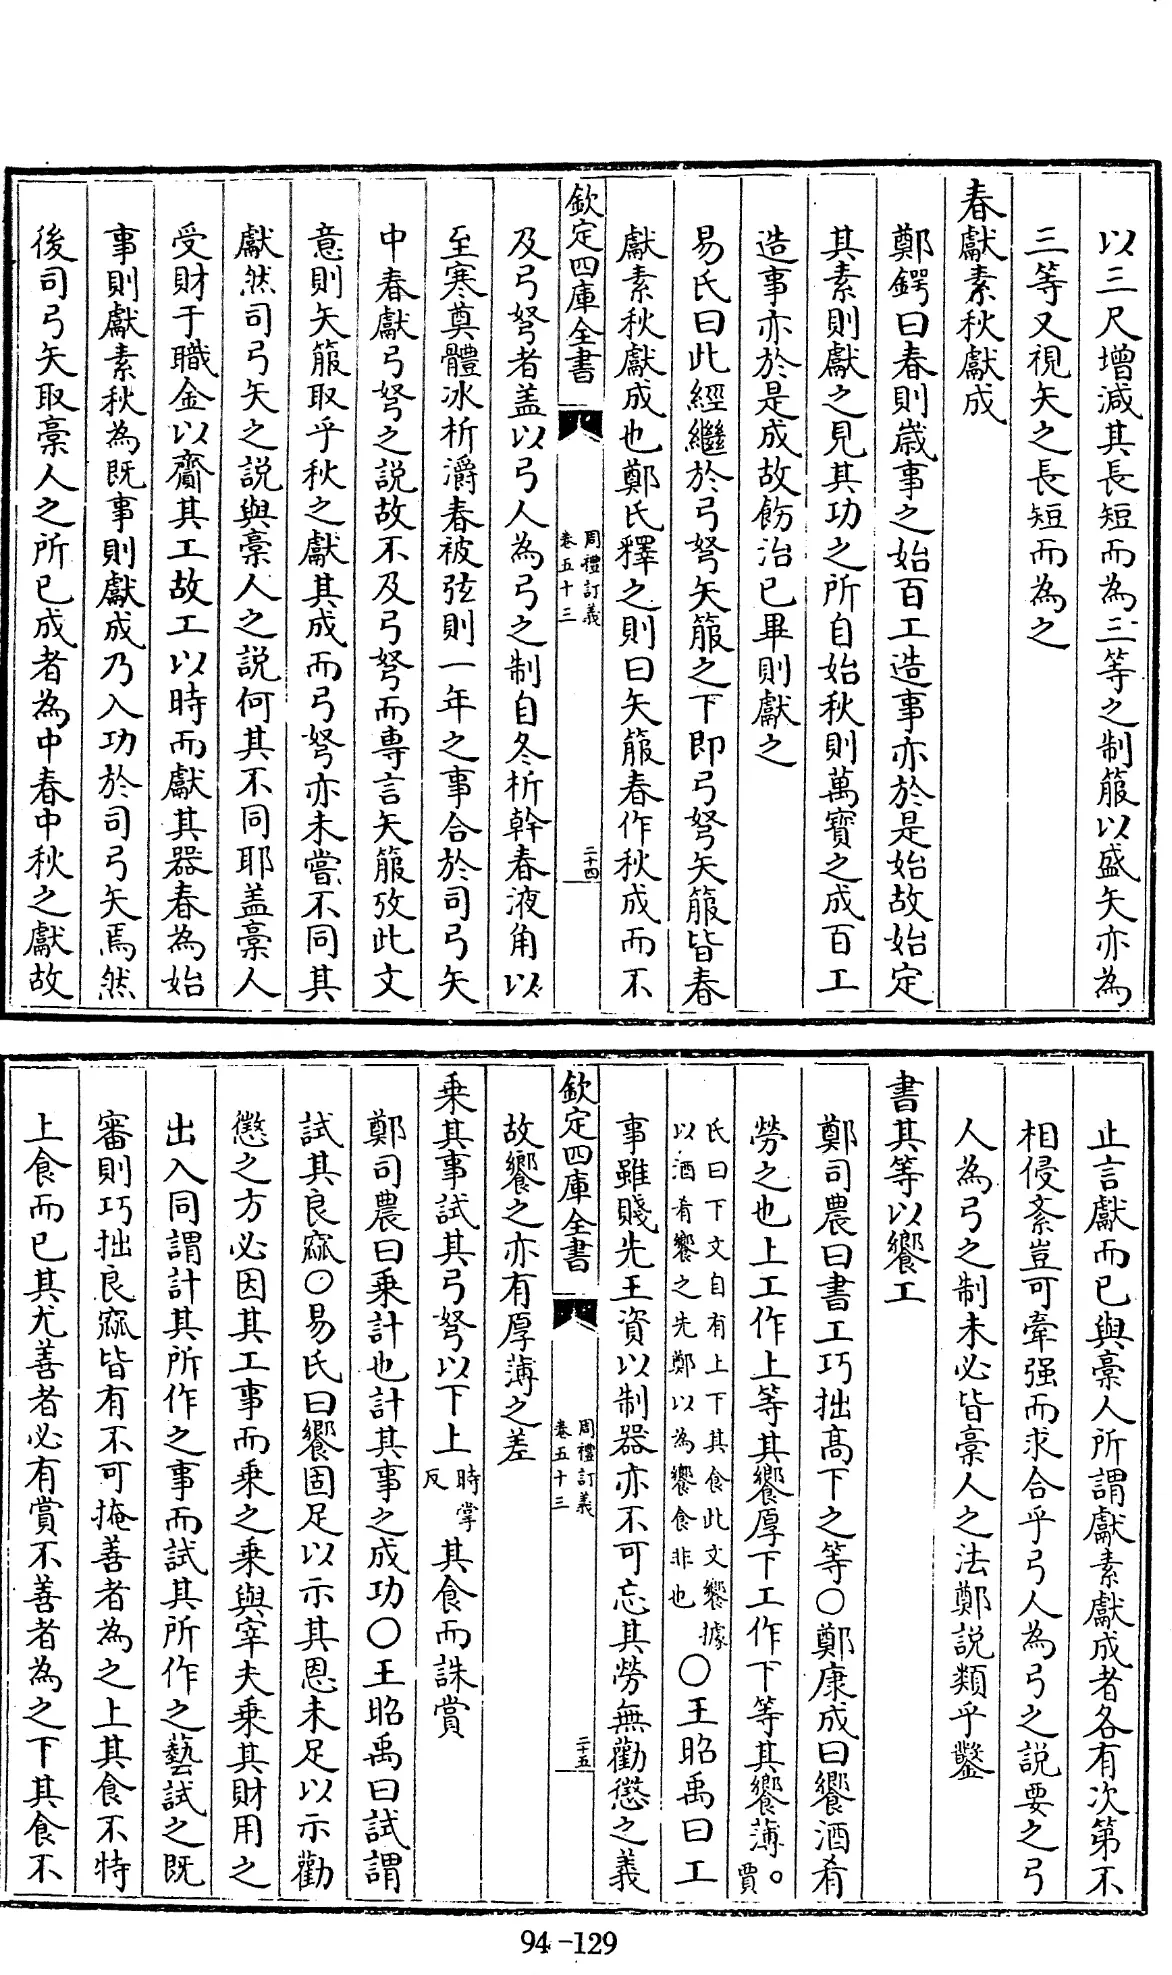 以三尺增減其長短而為三等之制箙以盛矢亦為
三等又視矢之長短而為之
春獻素秋獻成
鄭鍔曰春則歳事之始百工造事亦於是始故始定
其素則獻之見其功之所自始秋則萬寶之成百工
造事亦於是成故飭治已畢則獻之
易氏曰此經繼於弓弩矢箙之下即弓弩矢箙皆春
獻素秋獻成也鄭氏釋之則曰矢箙春作秋成而不
欽定四庫全書
周禮訂義
卷五十三
二十四
及弓弩者盖以弓人為弓之制自冬析幹春液角以
至寒奠體冰析灂春被弦則一年之事合於司弓矢
中春獻弓弩之説故不及弓弩而専言矢箙攷此文
意則矢箙取乎秋之獻其成而弓弩亦未嘗不同其
獻然司弓矢之説與槀人之説何其不同耶盖槀人
受財于職金以齎其工故工以時而獻其器春為始
事則獻素秋為既事則獻成乃入功於司弓矢焉然
後司弓矢取槀人之所已成者為中春中秋之獻故
止言獻而已與槀人所謂獻素獻成者各有次第不
相侵紊豈可牽强而求合乎弓人為弓之説要之弓
人為弓之制未必皆槀人之法鄭説類乎鑿
書其等以饗工
鄭司農曰書工巧拙高下之等○鄭康成曰饗酒肴
勞之也上工作上等其饗厚下工作下等其饗薄。賈
氏曰下文自有上下其食此文饗據
以酒肴饗之先鄭以為饗食非也○王昭禹曰工
事雖賤先王資以制器亦不可忘其勞無勸懲之義
欽定四庫全書
周禮訂義
卷五十三
二十五
故饗之亦有厚薄之差
乗其事試其弓弩以下上時掌反其食而誅賞
鄭司農曰乗計也計其事之成功○王昭禹曰試謂
試其良窳○易氏曰饗固足以示其恩未足以示勸
懲之方必因其工事而乗之乗與宰夫乗其財用之
出入同謂計其所作之事而試其所作之藝試之既
審則巧拙良窳皆有不可掩善者為之上其食不特
上食而已其尤善者必有賞不善者為之下其食不
94-129